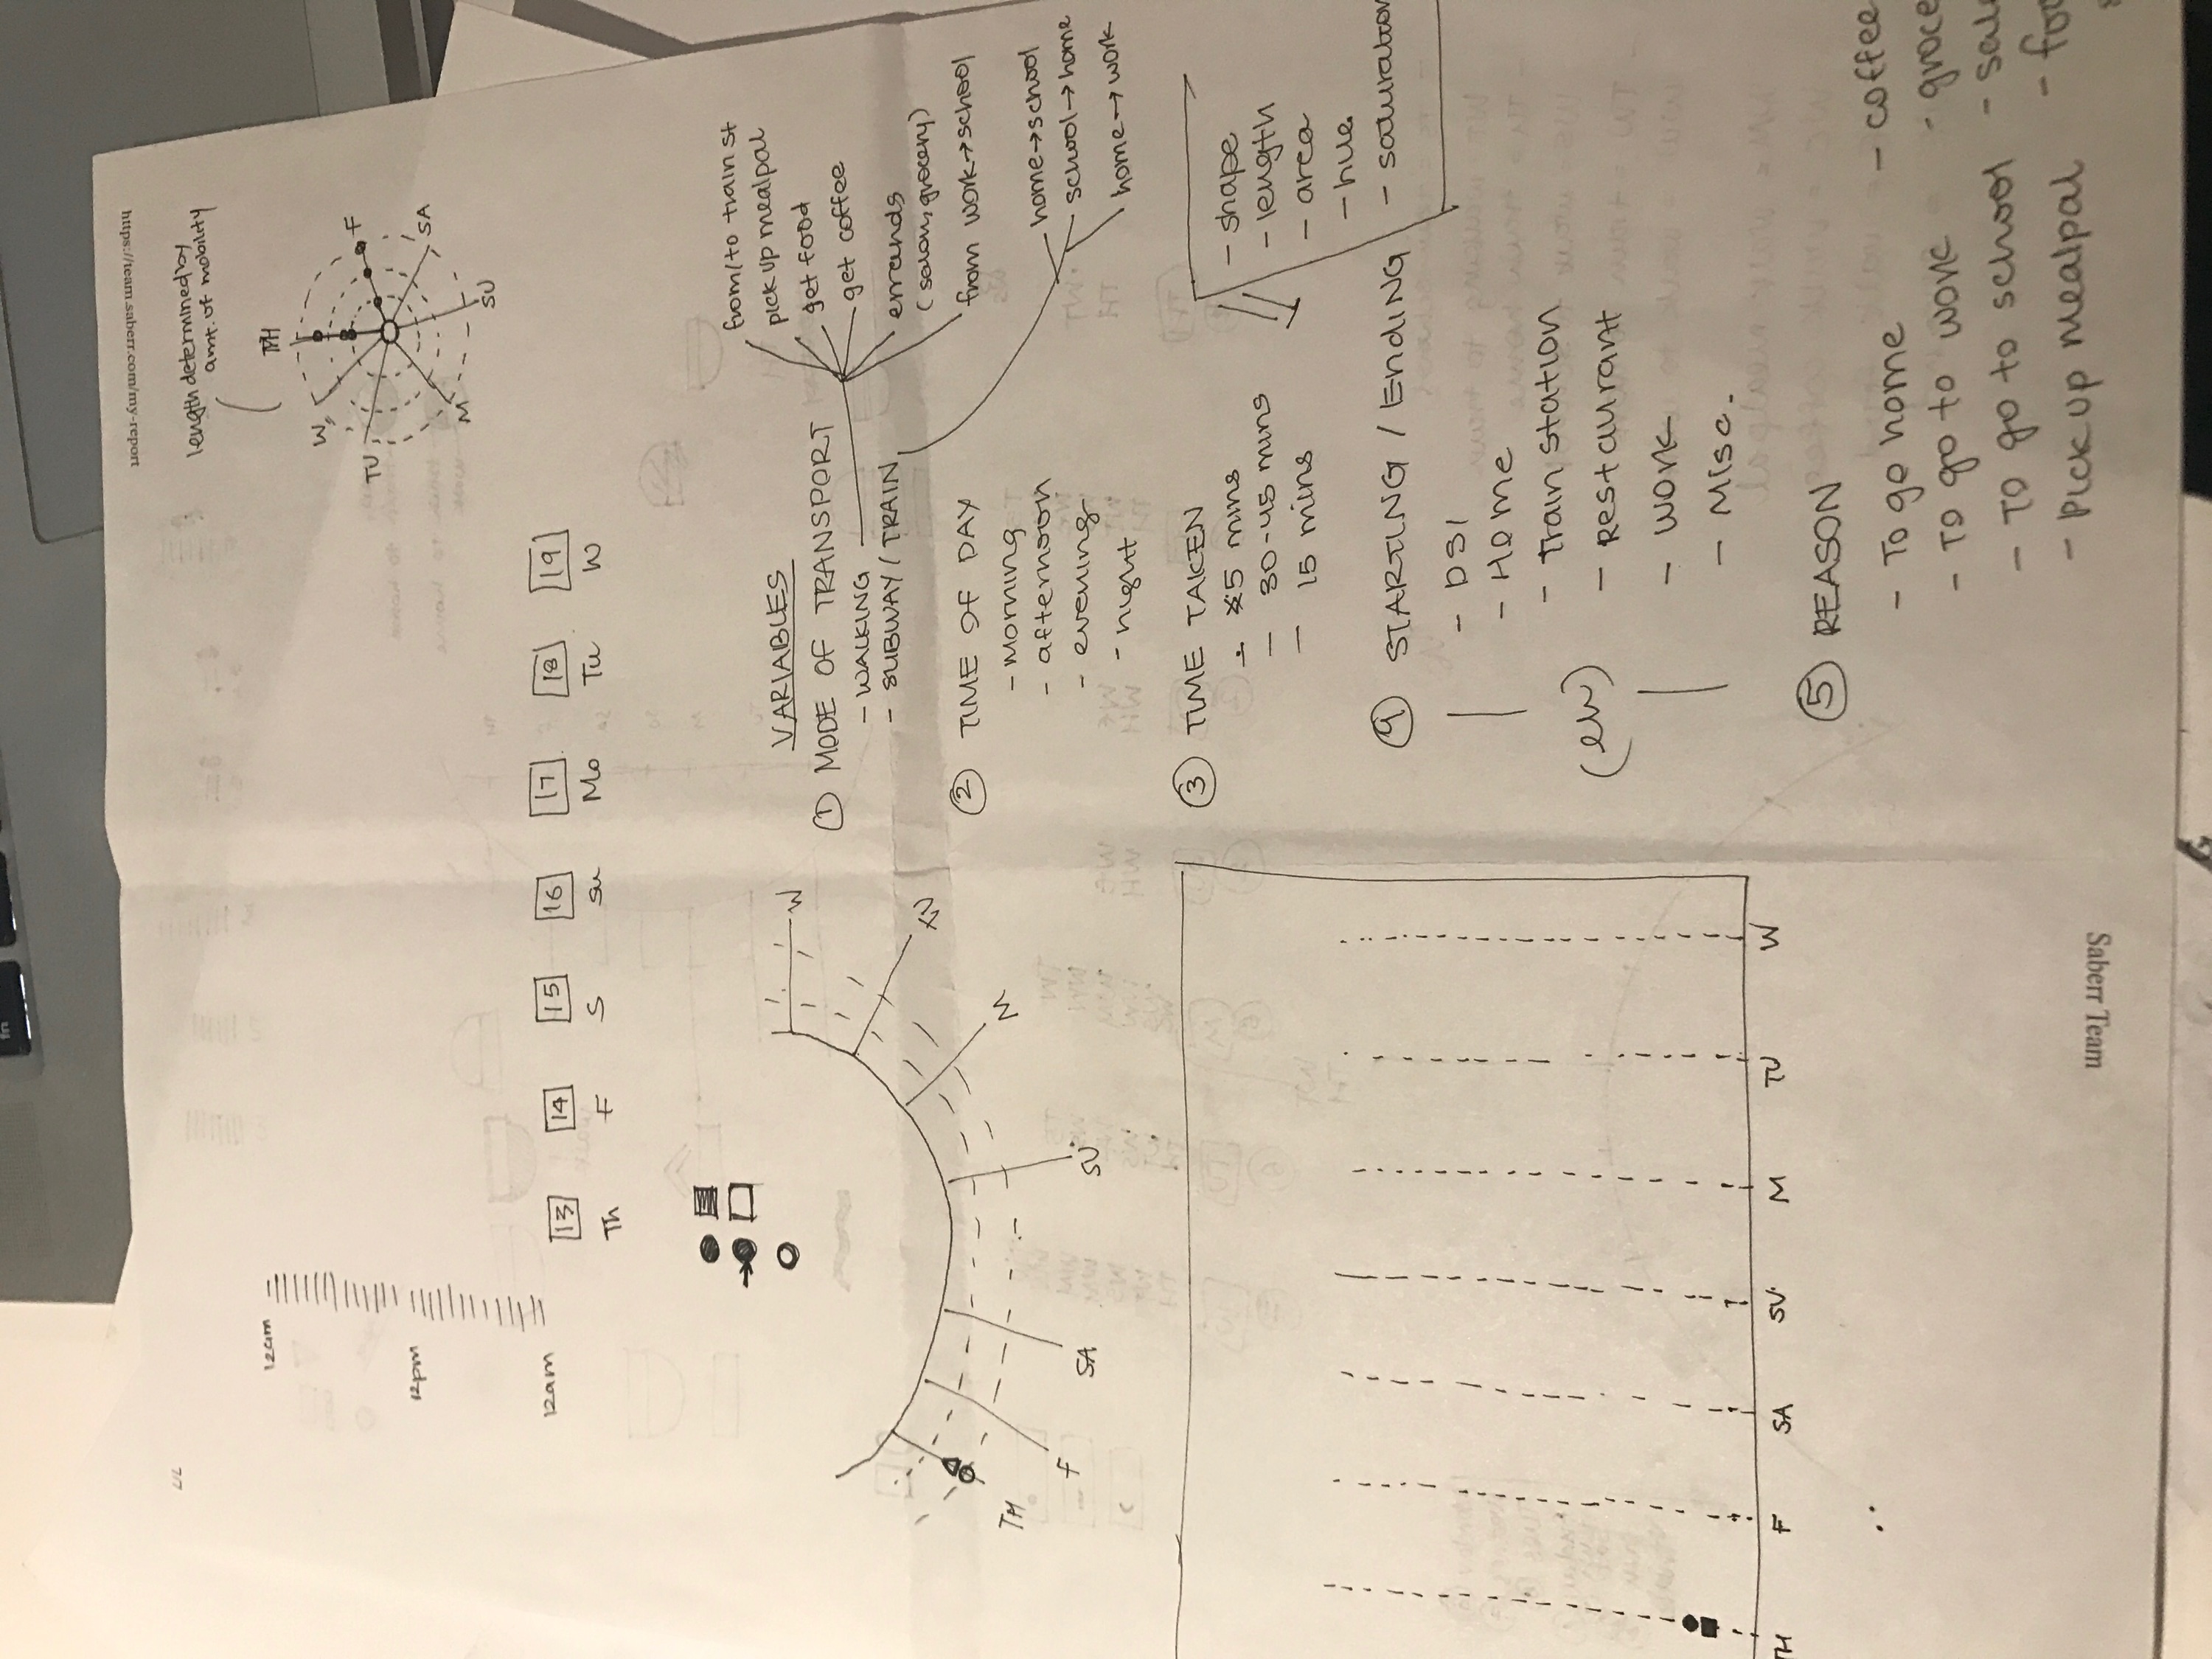 fn
https://team.saberr.com/my-report
7/7
length determined by
amt. of mobility
TH
W
F
TU
SA
M
SU
12am
12pm
12am
13 14 15 16 17 18 19
Th F S Su Mo Tu W
W
TU
M
TH
F
SA
SU
VARIABLES
① MODE OF TRANSPORT
- WALKING
- SUBWAY / TRAIN
from/to train st
pick up mealpal
get food
get coffee
errands
(salon, grocery)
from work→school
home→school
school→home
home→work
② TIME OF DAY
- morning
- afternoon
- evening
- night
③ TIME TAKEN
- 5 mins
- 30-45 mins
- 15 mins
- shape
- length
- area
- hue
- saturation
④ STARTING / Ending
- DSI
- Home
- Train station
- Restaurant
- work
- Misc.
TH F SA SU M TU W
⑤ REASON
- To go home
- To go to work
- To go to school
- Pick up mealpal
- coffee
Saberr Team